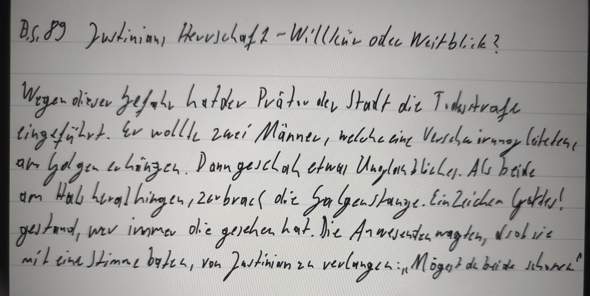 B.S. 89 Justinians Herrschaft - Willkür oder Weitblick?
Wegen dieser Gefahr hat der Prätor der Stadt die Todesstrafe
eingeführt. Er wollte zwei Männer, welche eine Verschwörung leiteten,
am Galgen erhängen. Dann geschah etwas Unglaubliches. Als beide
am Hals herabhingen, zerbrach die Galgenstange. Ein Zeichen Gottes!
gestand, wer immer die gesehen hat. Die Anwesenden wagten, sobald sie
mit eine Stimme baten, von Justinian zu verlangen: „Mögest du beide schonen"